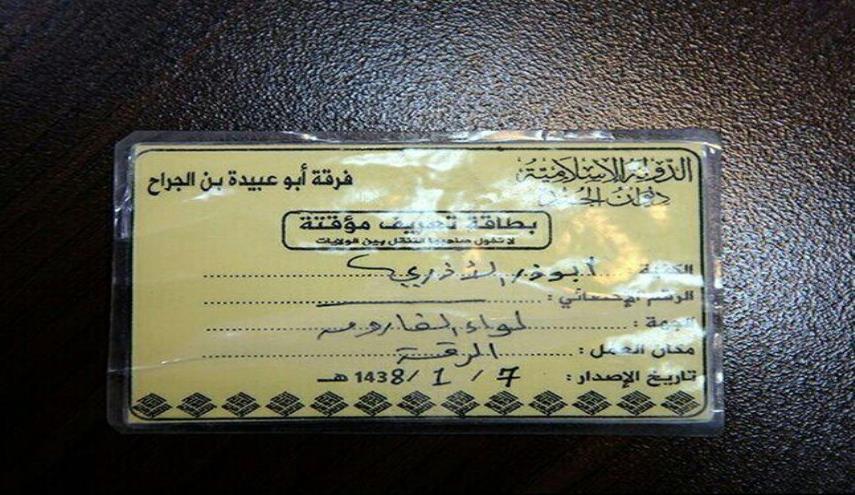 الدولة الإسلامية
ديوان الجند
فرقة أبو عبيدة بن الجراح
بطاقة تعريف مؤقتة
لا تخول صاحبها التنقل بين الولايات
الكنية : أبوذر الأذري
الرقم الإحصائي :
الجهة : لواء الفاروق
مكان العمل : الرقة
تاريخ الإصدار : 7 / 1 / 1438 هـ